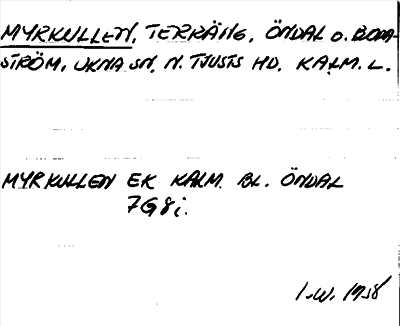 MYRKULLEN, TERRÄNG, ÖNDAL O. BODA-
STRÖM, UKNA SN, N. TJUSTS HD, KALM. L.
MYRKULLEN EK KALM. BL. ÖNDAL
7G8i.
I.W. 1958